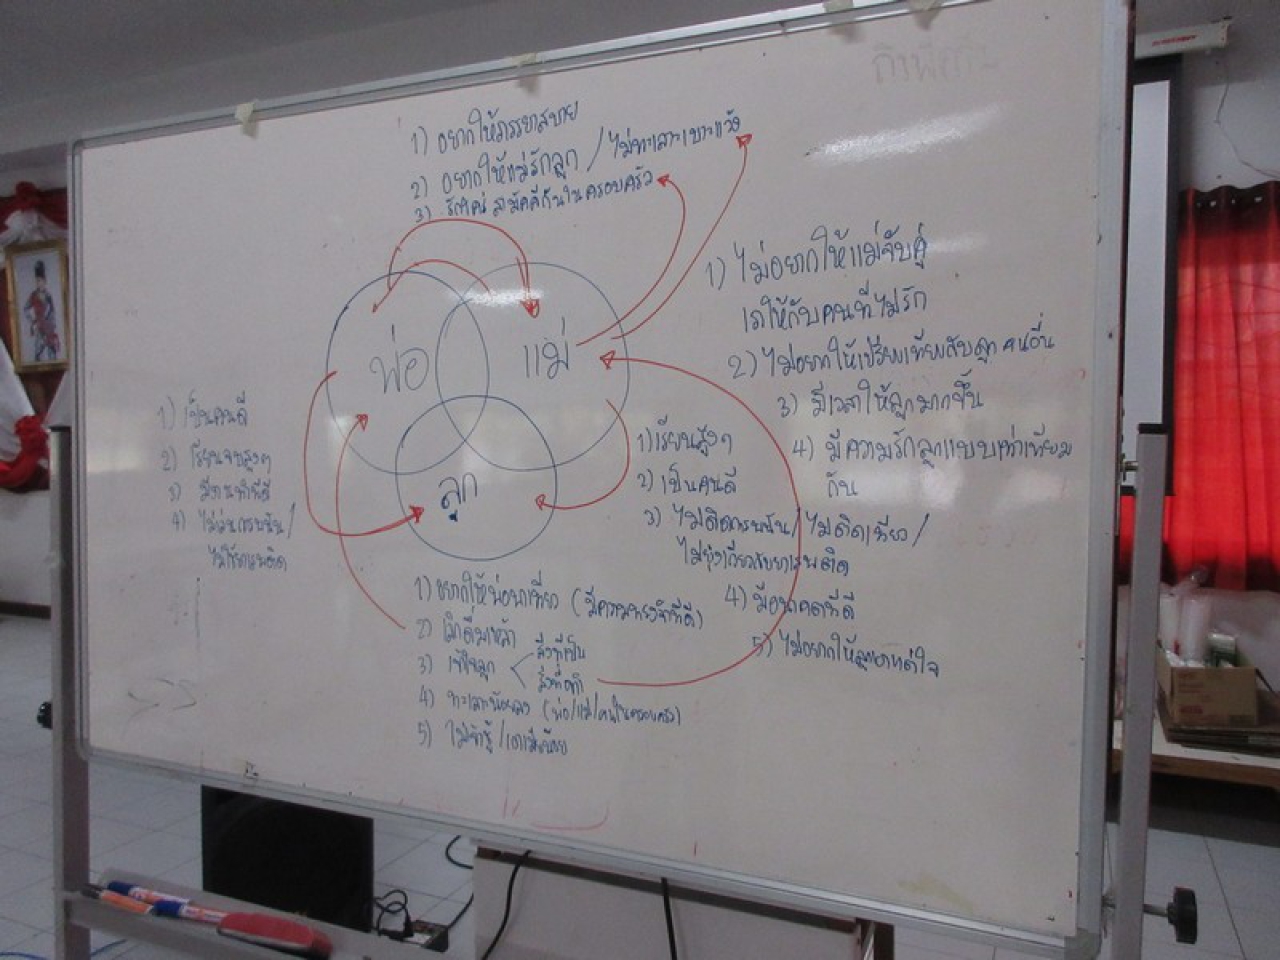 1) อยากให้ภรรยาสบาย
2) อยากให้แม่รักลูก / ไม่ทะเลาะเบาะแว้ง
3) รักใคร่ สามัคคีกันในครอบครัว
พ่อ
แม่
ลูก
1) เป็นคนดี
2) เรียนจบสูงๆ
3) มีงานทำที่ดี
4) ไม่เล่นการพนัน/
ไม่ใช้ยาเสพติด
1) ไม่อยากให้แม่จับคู่
ให้กับคนที่ไม่รัก
2) ไม่อยากให้เปรียบเทียบกับลูกคนอื่น
3) มีเวลาให้ลูกมากขึ้น
4) มีความรักลูกแบบเท่าเทียม
กัน
1) เรียนสูงๆ
2) เป็นคนดี
3) ไม่ติดการพนัน/ ไม่ติดเที่ยว/
ไม่ยุ่งเกี่ยวกับยาเสพติด
4) มีอนาคตที่ดี
5) ไม่อยากให้ลูกเอาแต่ใจ
1) อยากให้พ่อพาเที่ยว (มีความทรงจำที่ดี)
2) เลิกดื่มเหล้า
3) เข้าใจลูก
สิ่งที่เป็น
สิ่งที่ทำ
4) ทะเลาะน้อยลง (พ่อ/แม่/คนในครอบครัว)
5) ไม่เจ้าชู้/